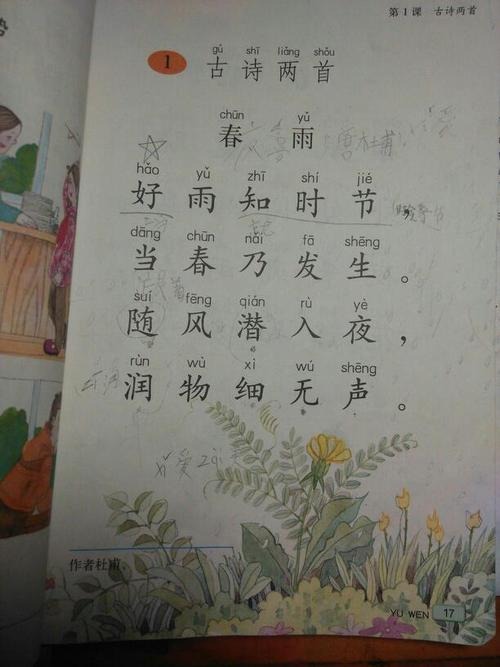 第1课 古诗两首
gǔ shī liǎng shǒu
1 古诗两首
chūn yǔ
春雨
hǎo yǔ zhī shí jié
好雨知时节,
dāng chūn nǎi fā shēng
当春乃发生。
suí fēng qián rù yè
随风潜入夜,
rùn wù xì wú shēng
润物细无声。
作者杜甫。
YU WEN 17